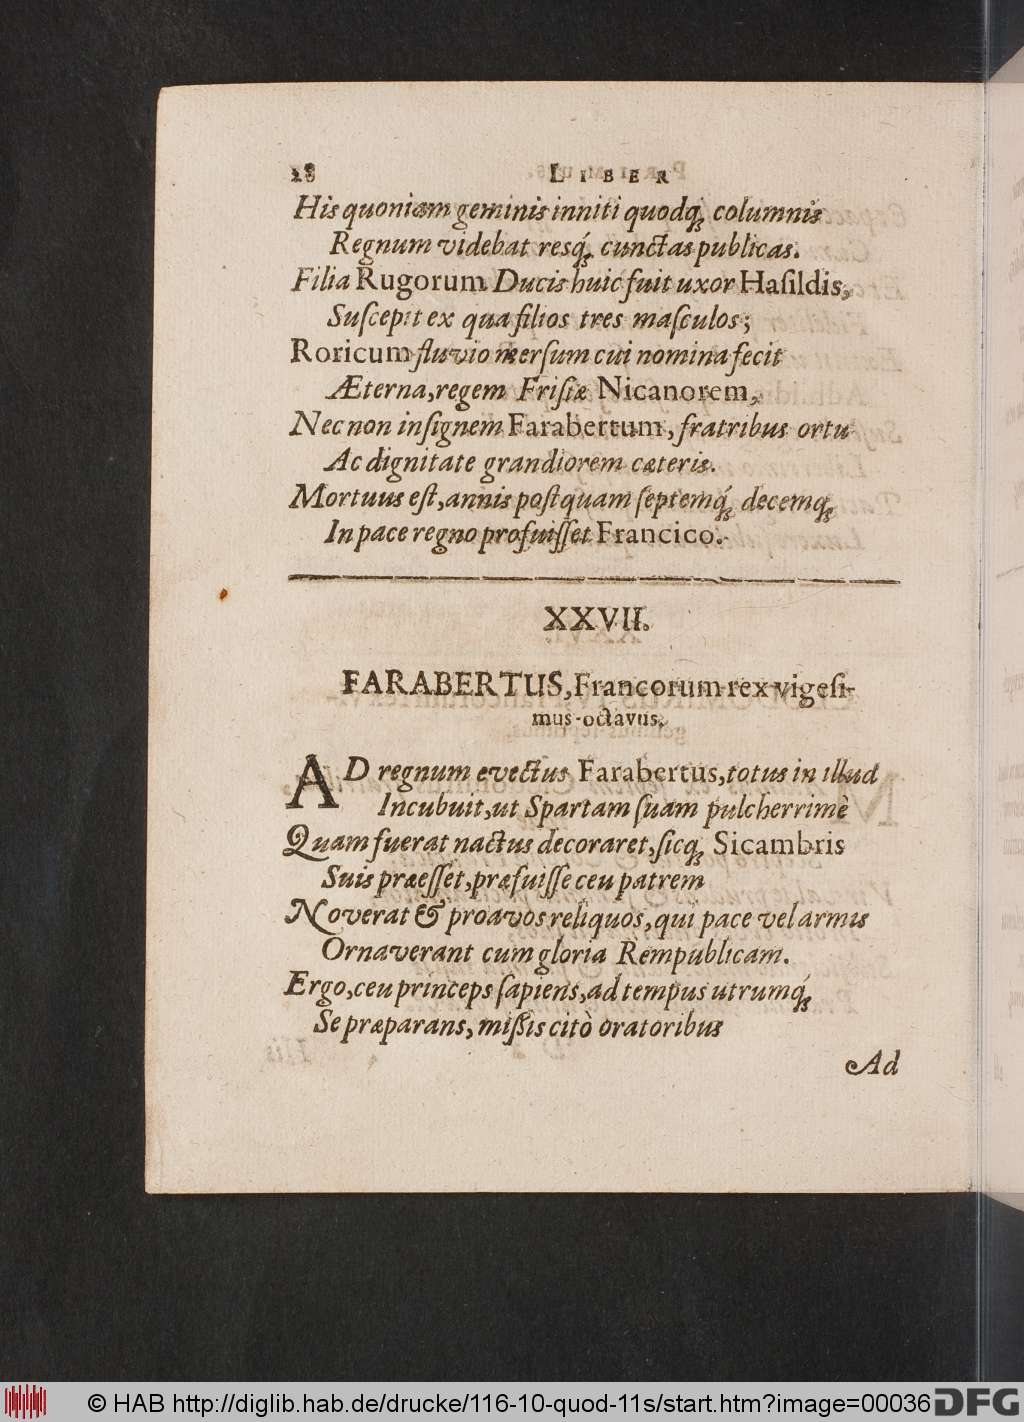 28 LIBER
His quoniam geminis inniti quodq́; columnis
Regnum videbat resq́; cunctas publicas.
Filia Rugorum Ducis huic fuit uxor Hasildis,
Suscepit ex qua filios tres masculos;
Roricum fluvio mersum cui nomina fecit
Æterna, regem Frisiæ Nicanorem,
Nec non insignem Farabertum, fratribus ortu
Ac dignitate grandiorem cæteris.
Mortuus est, annis postquam septemq́; decemq;
In pace regno profuisset Francico.
XXVII.
FARABERTUS, Francorum rex vigesi-
mus-octavus.
AD regnum evectus Farabertus, totus in illud
Incubuit, ut Spartam suam pulcherrimè
Quam fuerat nactus decoraret, sicq; Sicambris
Suis præesset, præfuisse ceu patrem
Noverat & proavos reliquos, qui pace vel armis
Ornaverant cum gloria Rempublicam.
Ergo, ceu princeps sapiens, ad tempus utrumq́;
Se præparans, missis citò oratoribus
Ad
© HAB http://diglib.hab.de/drucke/116-10-quod-11s/start.htm?image=00036
DFG